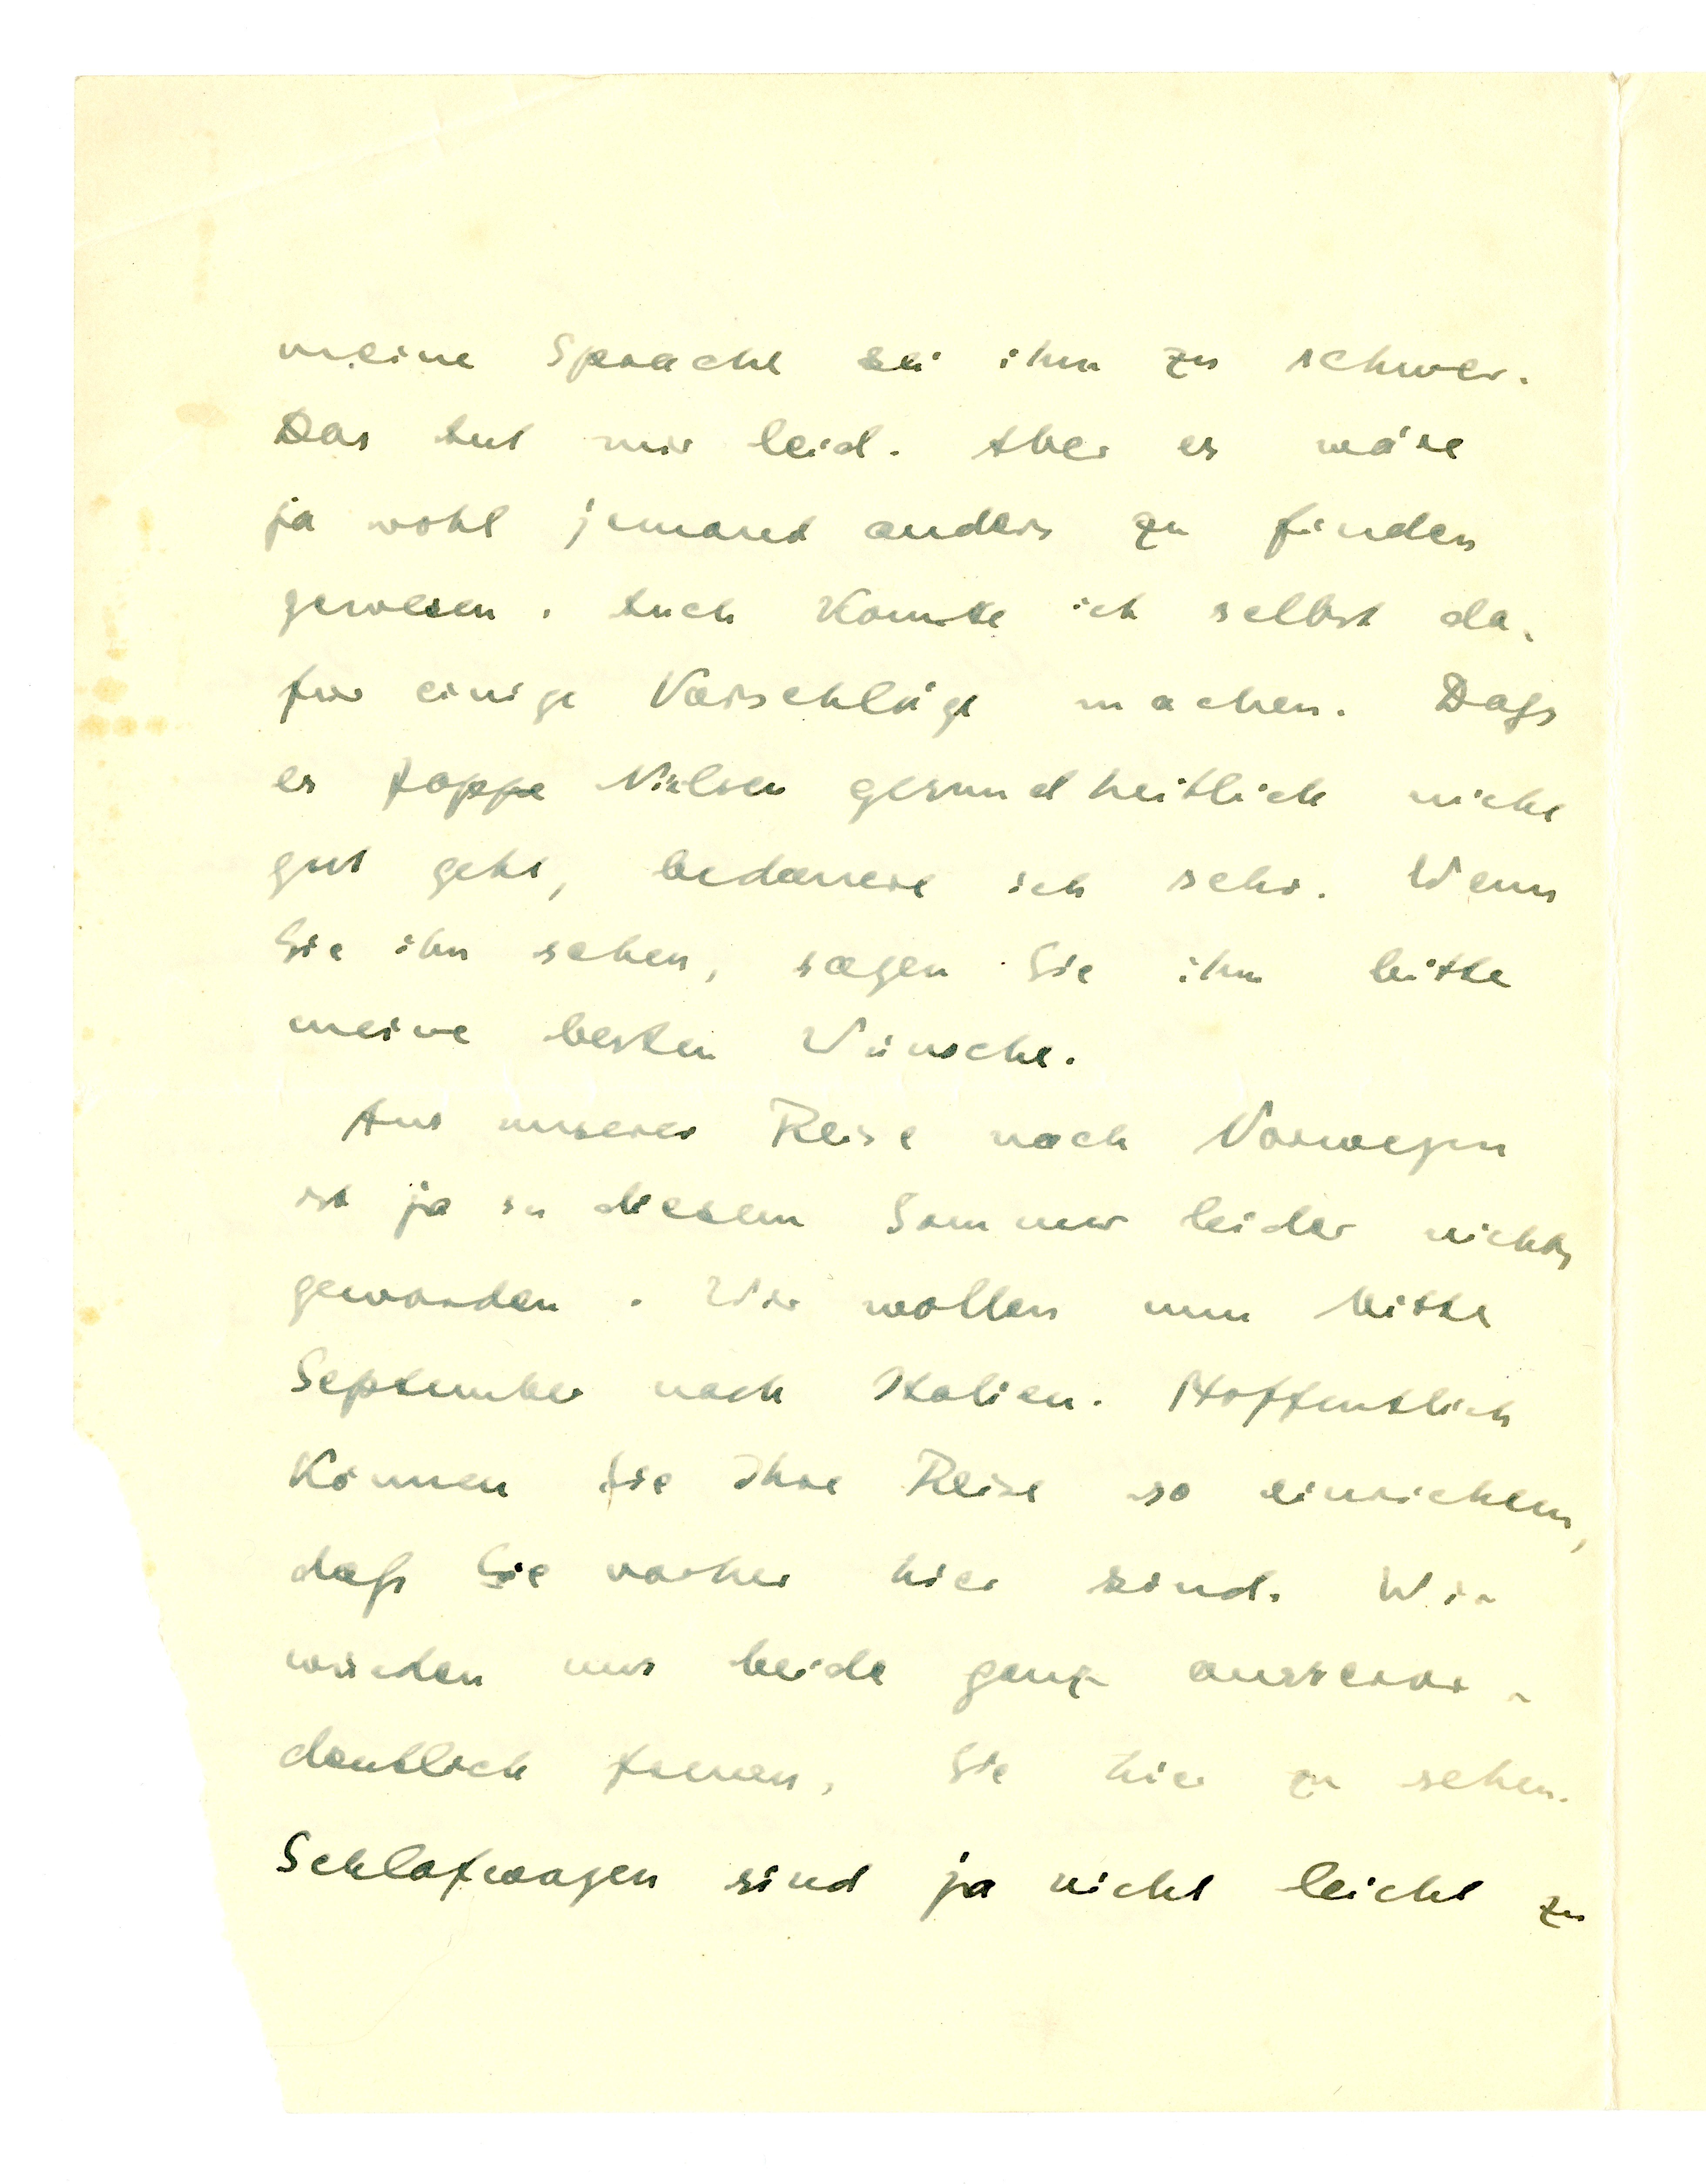 meine Sprache sei ihm zu schwer.
Das tut mir leid. Aber es wäre
ja wohl jemand anders zu finden
gewesen. Auch konnte ich selbst da-
für einige Vorschläge machen. Daß
es Foppe Nielsen gesundheitlich nicht
gut geht, bedauere ich sehr. Wenn
Sie ihn sehen, sagen Sie ihm bitte
meine besten Wünsche.
Aus unserer Reise nach Norwegen
ist ja in diesem Sommer leider nichts
geworden. Wir wollen nun Mitte
September nach Italien. Hoffentlich
können Sie Ihre Reise so einrichten,
daß Sie vorher hier sind. Wir
würden uns beide ganz ausseror-
dentlich freuen, Sie hier zu sehen.
Schlafwagen sind ja nicht leicht zu